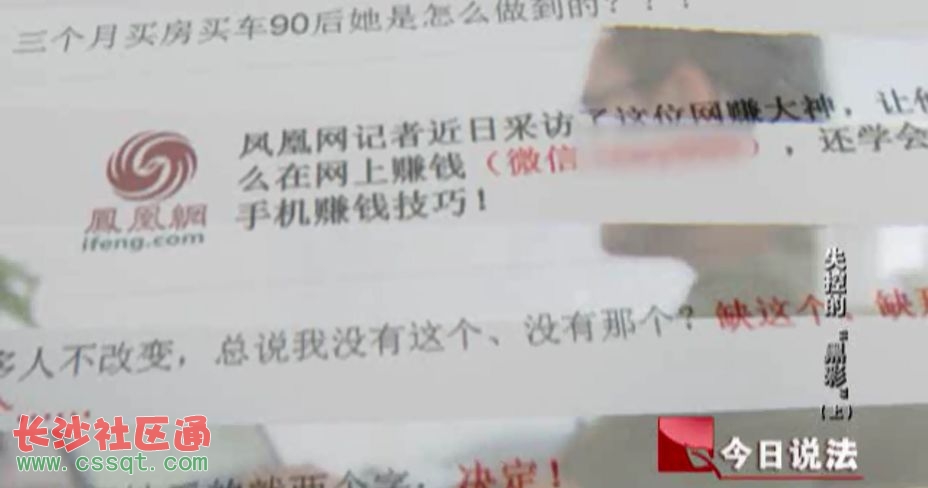 三个月买房买车90后她是怎么做到的？？？
凤凰网记者近日采访了这位网赚大神，让他
么在网上赚钱（微信），还学会
手机赚钱技巧！
鳳凰網
ifeng.com
多人不改变，总说我没有这个、没有那个？缺这个、缺那
就两个字，决定！
失控的"黑彩"
（上）
今日说法
长沙社区通
www.cssqt.com